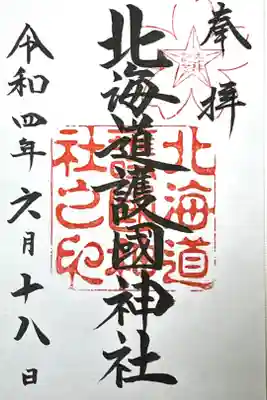 奉拝
北海道護國神社
北海道
護國神
社之印
令和四年六月十八日